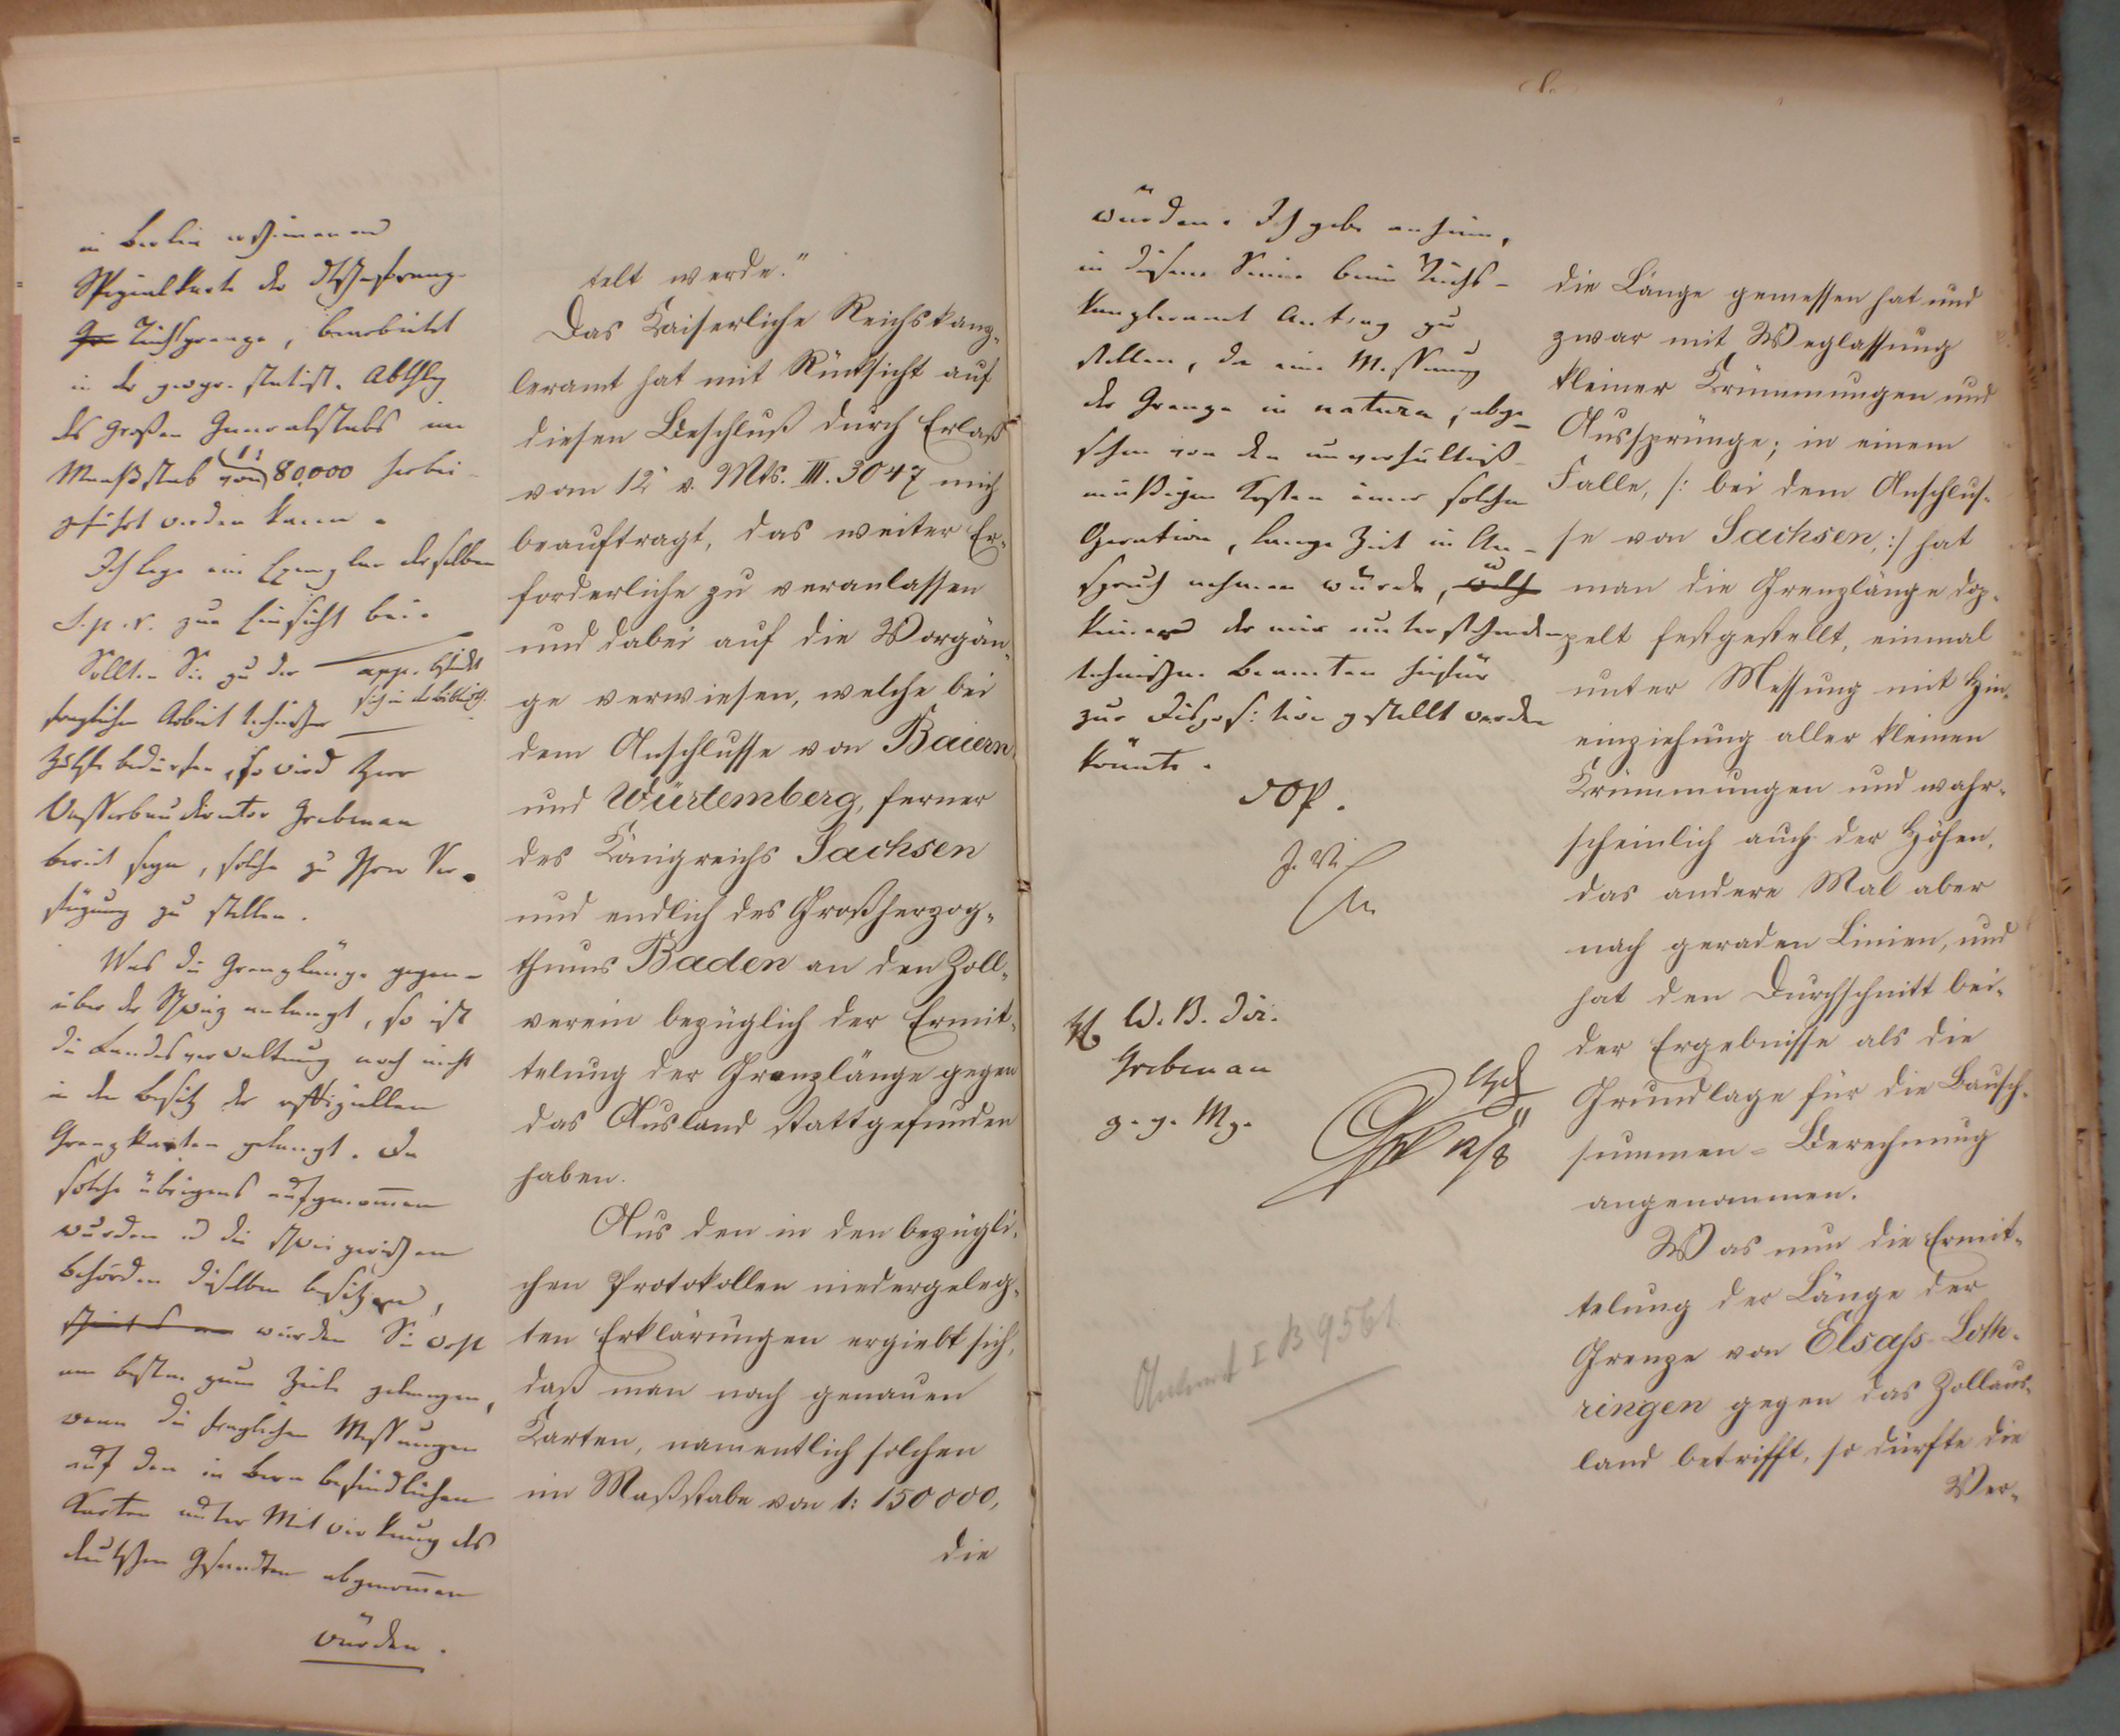 in Berlin erschienenen
Spezialkarte der deutsch-franz.
Gr Reichsgrenze, bearbeitet
in der geogr. statist. Abthlg
des Großen Generalstabs im
Maaßstab von 1: 80,000 herbei-
geführt werden kann.
Ich lege ein Exemplar derselben
s. p. r. zur Einsicht bei.
Sollten Sie zu der
app. befindet
sich in der Biblioth.
fraglichen Arbeit technischer
Hülfe bedürfen, so wird Herr
Wasserbaudirektor Grebenau
bereit seyn, solche zu Ihrer Ver-
fügung zu stellen.
Was die Grenzlänge gegen-
über der Schweiz anlangt, so ist
die Landesverwaltung noch nicht
in den Besitz der offiziellen
Grenzkarten gelangt. Da
solche übrigens aufgenommen
wurden u die schweizerischen
Behörden dieselben besitzen,
würden Sie wohl
am besten zum Ziele gelangen,
wenn die fraglichen Messungen
auf den in Bern befindlichen
Karten unter Mitwirkung des
deutschen Gesandten abgenommen
würden.
telt werde."
Das Kaiserliche Reichskanz-
leramt hat mit Rücksicht auf
diesen Beschluß durch Erlaß
vom 12 v. Mts. III. 3047 mich
beauftragt, das weiter Er-
forderliche zu veranlassen
und dabei auf die Vorgän-
ge verwiesen, welche bei
dem Anschlusse von Baiern
und Würtemberg, ferner
des Königreichs Sachsen
und endlich des Großherzog-
thums Baden an den Zoll-
verein bezüglich der Ermit-
telung der Grenzlänge gegen
das Ausland stattgefunden
haben.
Aus den in den bezügli-
chen Protokollen niedergeleg-
ten Erklärungen ergiebt sich,
daß man nach genauen
Karten, namentlich solchen
im Maßstabe von 1: 150 000,
die
würden. Ich gebe anheim,
in diesem Sinne beim Reichs-
kanzleramt Antrag zu
stellen, da eine Messung
der Grenze in natura, abge-
sehen von den unverhältniß-
mäßigen Kosten einer solchen
Operation, lange Zeit in An-
spruch nehmen würde, welche u
keiner der mir unterstehenden
technischen Beamten hiefür
zur Disposition gestellt werden
könnte.
dOP.
J. V.
W. B. Dir.
Grebenau
z. g. Mz.
12/8
I B 9561
die Länge gemessen hat und
zwar mit Weglassung
kleiner Krümmungen und
Aussprünge; in einem
Falle, /: bei dem Anschlus-
se von Sachsen, :/ hat
man die Grenzlänge dop-
pelt festgestellt, einmal
unter Messung mit Hin-
einziehung aller kleinen
Krümmungen und wahr-
scheinlich auch der Höhen,
das andere Mal aber
nach geraden Linien, und
hat den Durchschnitt bei-
der Ergebnisse als die
Grundlage für die Bausch-
summen-Berechnung
angenommen.
Was nun die Ermit-
telung der Länge der
Grenze von Elsass-Loth-
ringen gegen das Zollaus-
land betrifft, so dürfte die
Ver-